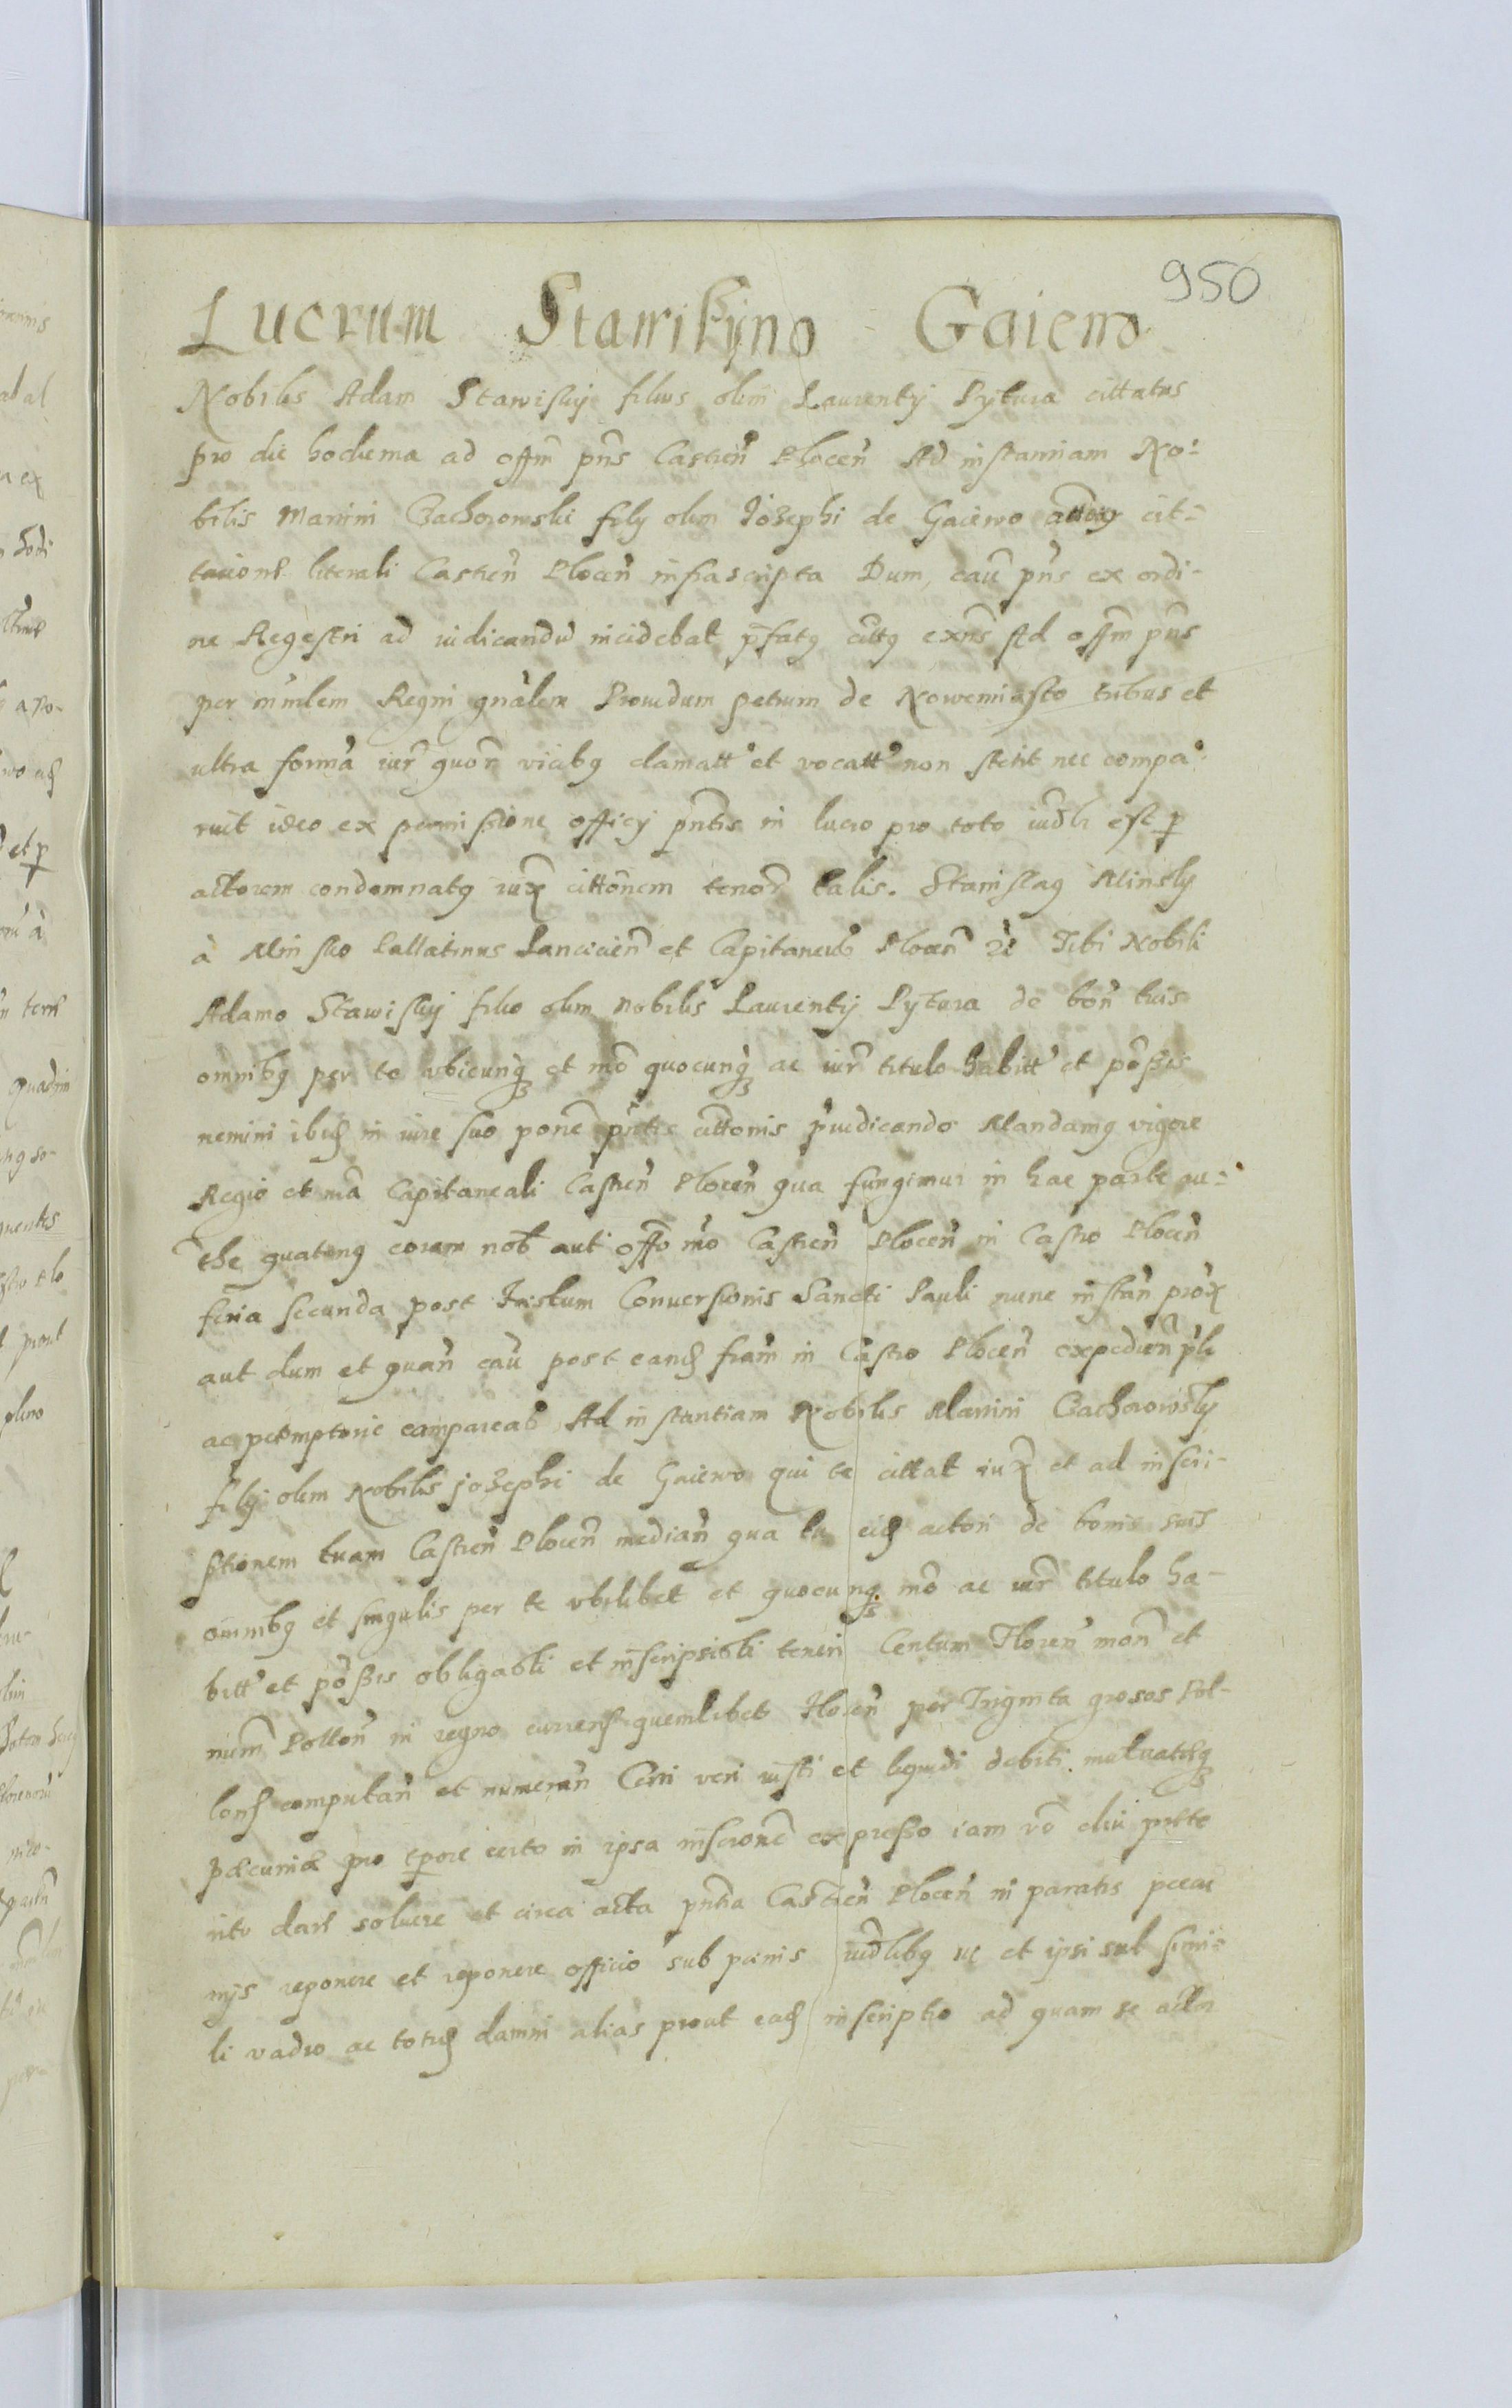 950
Lucrum Stawiskÿno Gaiewo
Nobilis Adam Stawiskÿ filius olim Laurentÿ Pÿtura cittatus
pro die hodierna ad offm̃ pñs Castreñ Ploceñ Ad instantiam No-
bilis Martini Czachorowski filÿ olim Jozephi de Gaiewo cit-
tatione literali Castreñ Plocen̄ infrascripta Dum cauẽ pñs ex ordi-
ne Regestri ad iudicandũ incidebat p̃fatq citq exñs Ad offm̃ pñs
per m̃nlem Regni gñalem Prouidum Petrum de Nowemiasto tribus et
ultra formã iur̃ quor̃ vicibq clamatt et vocatt non stetit nec compa-
ruit ideo ex permissione officÿ pñtis in lucro pro toto iud̃li est p
actorem condemnatq iux̃ cittõnem tenor̃ talis. Stanislaq Minskÿ
à Minsko Pallatinus Lancicieñ et Capitaneus Ploceñ Tibi Nobili
Adamo Stawiskÿ filio olim Nobilis Laurentÿ Pÿtura de boñ tuis
omnibq per te vbicunq et mõ quocunq ac iur̃ titulo habitt et põssis
nemini ibid in iure suo põne pñtis cittõnis p̃iudicando Mandamq vigore
Regio et nrã Capitaneali Castreñ Ploceñ qua fungimur in hac parte au-
the quatenq coram nob̃ aut offo nr̃o Castreñ Ploceñ in Castro Ploceñ
feria secunda post festum Conuersionis Sancti Pauli nunc instañ prox̃
aut dum et quañ cau post eand fram̃ in Castro Ploceñ expedieñ
ac peremptorie compareas Ad instantiam Nobilis Martini Czachorowskÿ
filÿ olim Nobilis Jozephi de Gaiewo qui te cittat iux̃ et ad inscri-
ptionem tuam Castreñ Ploceñ mediañ qua tu eid actori de bonis tuis
omnibq et singulis per te vbilibet et quocunq mõ ac iur̃ titulo ha-
bitt et põssis obligasti et inscripsisti teneri Centum Floreñ moñ et
num̃ Polloñ in regno currens quemlibet Floreñ per Triginta grosos Pol-
lons computañ et numerañ Certi veri iusti et liquidi debiti mutuateq
pæcuniæ pro tpore certo in ipsa inscrõne expresso iam vo diu prete
rito dare soluere et circa acta pñtia Castreñ Ploceñ in paratis pecu
nÿs reponere et reponere officio sub pænis iud̃libq uc et ipsi sub simi-
li vadio ac totid damni alias prout ead inscriptio ad quam se actor